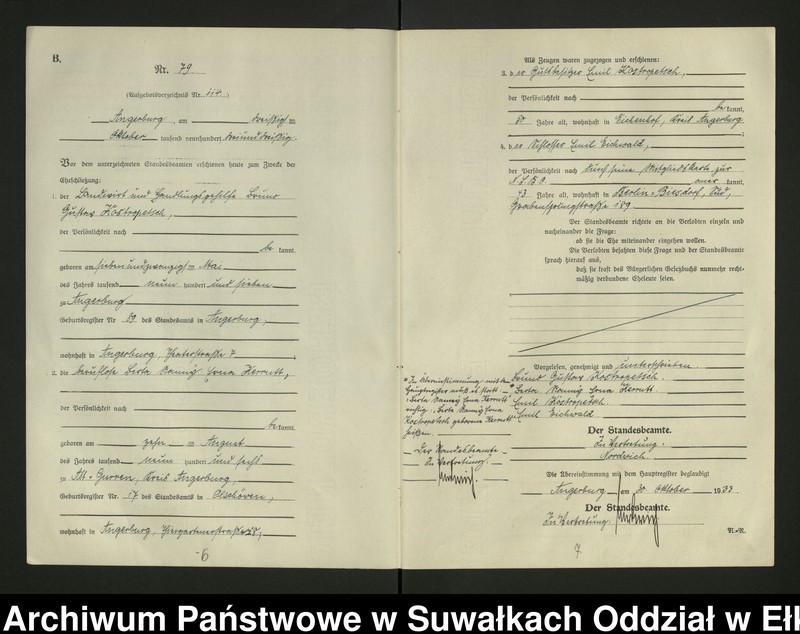 B.
Nr. 79
(Aufgebotsverzeichnis Nr. 110.)
Angerburg, am dreißig=
Oktober tausend neunhundert dreiunddreißig.
Vor dem unterzeichneten Standesbeamten erschienen heute zum Zwecke der
Eheschließung:
1. der Landwirt und Handlungsgehilfe Bruno
Gustav Kostropetsch,
der Persönlichkeit nach
be kannt,
geboren am siebenundzwanzig= Mai
des Jahres tausend neun hundert und sieben
zu Angerburg
Geburtsregister Nr. 89 des Standesamts in Angerburg,
wohnhaft in Angerburg, Theaterstraße 7,
2. die berufslose Herta Lona Herrutt,
der Persönlichkeit nach
be kannt,
geboren am zehn= August
des Jahres tausend neun hundert und sechs
zu Alt-Gurren, Kreis Angerburg,
Geburtsregister Nr. 17 des Standesamts in Olschöwen,
wohnhaft in Angerburg, Tiergartenerstraße 28,
6
Als Zeugen waren zugezogen und erschienen:
3. der Gutsbesitzer Emil Kostropetsch,
der Persönlichkeit nach
be kannt,
60 Jahre alt, wohnhaft in Eichenhof, Kreis Angerburg
4. der Schlosser Emil Eichwald,
der Persönlichkeit nach durch seine Mitgliedskarte zur
kannt,
43 Jahre alt, wohnhaft in Berlin-Biesdorf, Süd,
189
Der Standesbeamte richtete an die Verlobten einzeln und
nacheinander die Frage:
ob sie die Ehe miteinander eingehen wollen.
Die Verlobten bejahten diese Frage und der Standesbeamte
sprach hierauf aus,
daß sie kraft des Bürgerlichen Gesetzbuchs nunmehr recht-
mäßig verbundene Eheleute seien.
Vorgelesen, genehmigt und unterschrieben
Bruno Gustav Kostropetsch.
Herta Lona Herrutt.
Emil Kostropetsch
Emil Eichwald
In Übereinstimmung mit dem
Hauptregister muß es statt:
Herta Lona Herrutt
richtig: Herta Lona
Kostropetsch geborene Herrutt
heißen.
Der Standesbeamte
In Vertretung.
Der Standesbeamte.
In Vertretung.
Die Übereinstimmung mit dem Hauptregister beglaubigt
Angerburg, am 30. Oktober 1933
Der Standesbeamte.
In Vertretung
7
Archiwum Państwowe w Suwałkach Oddział w Ełk